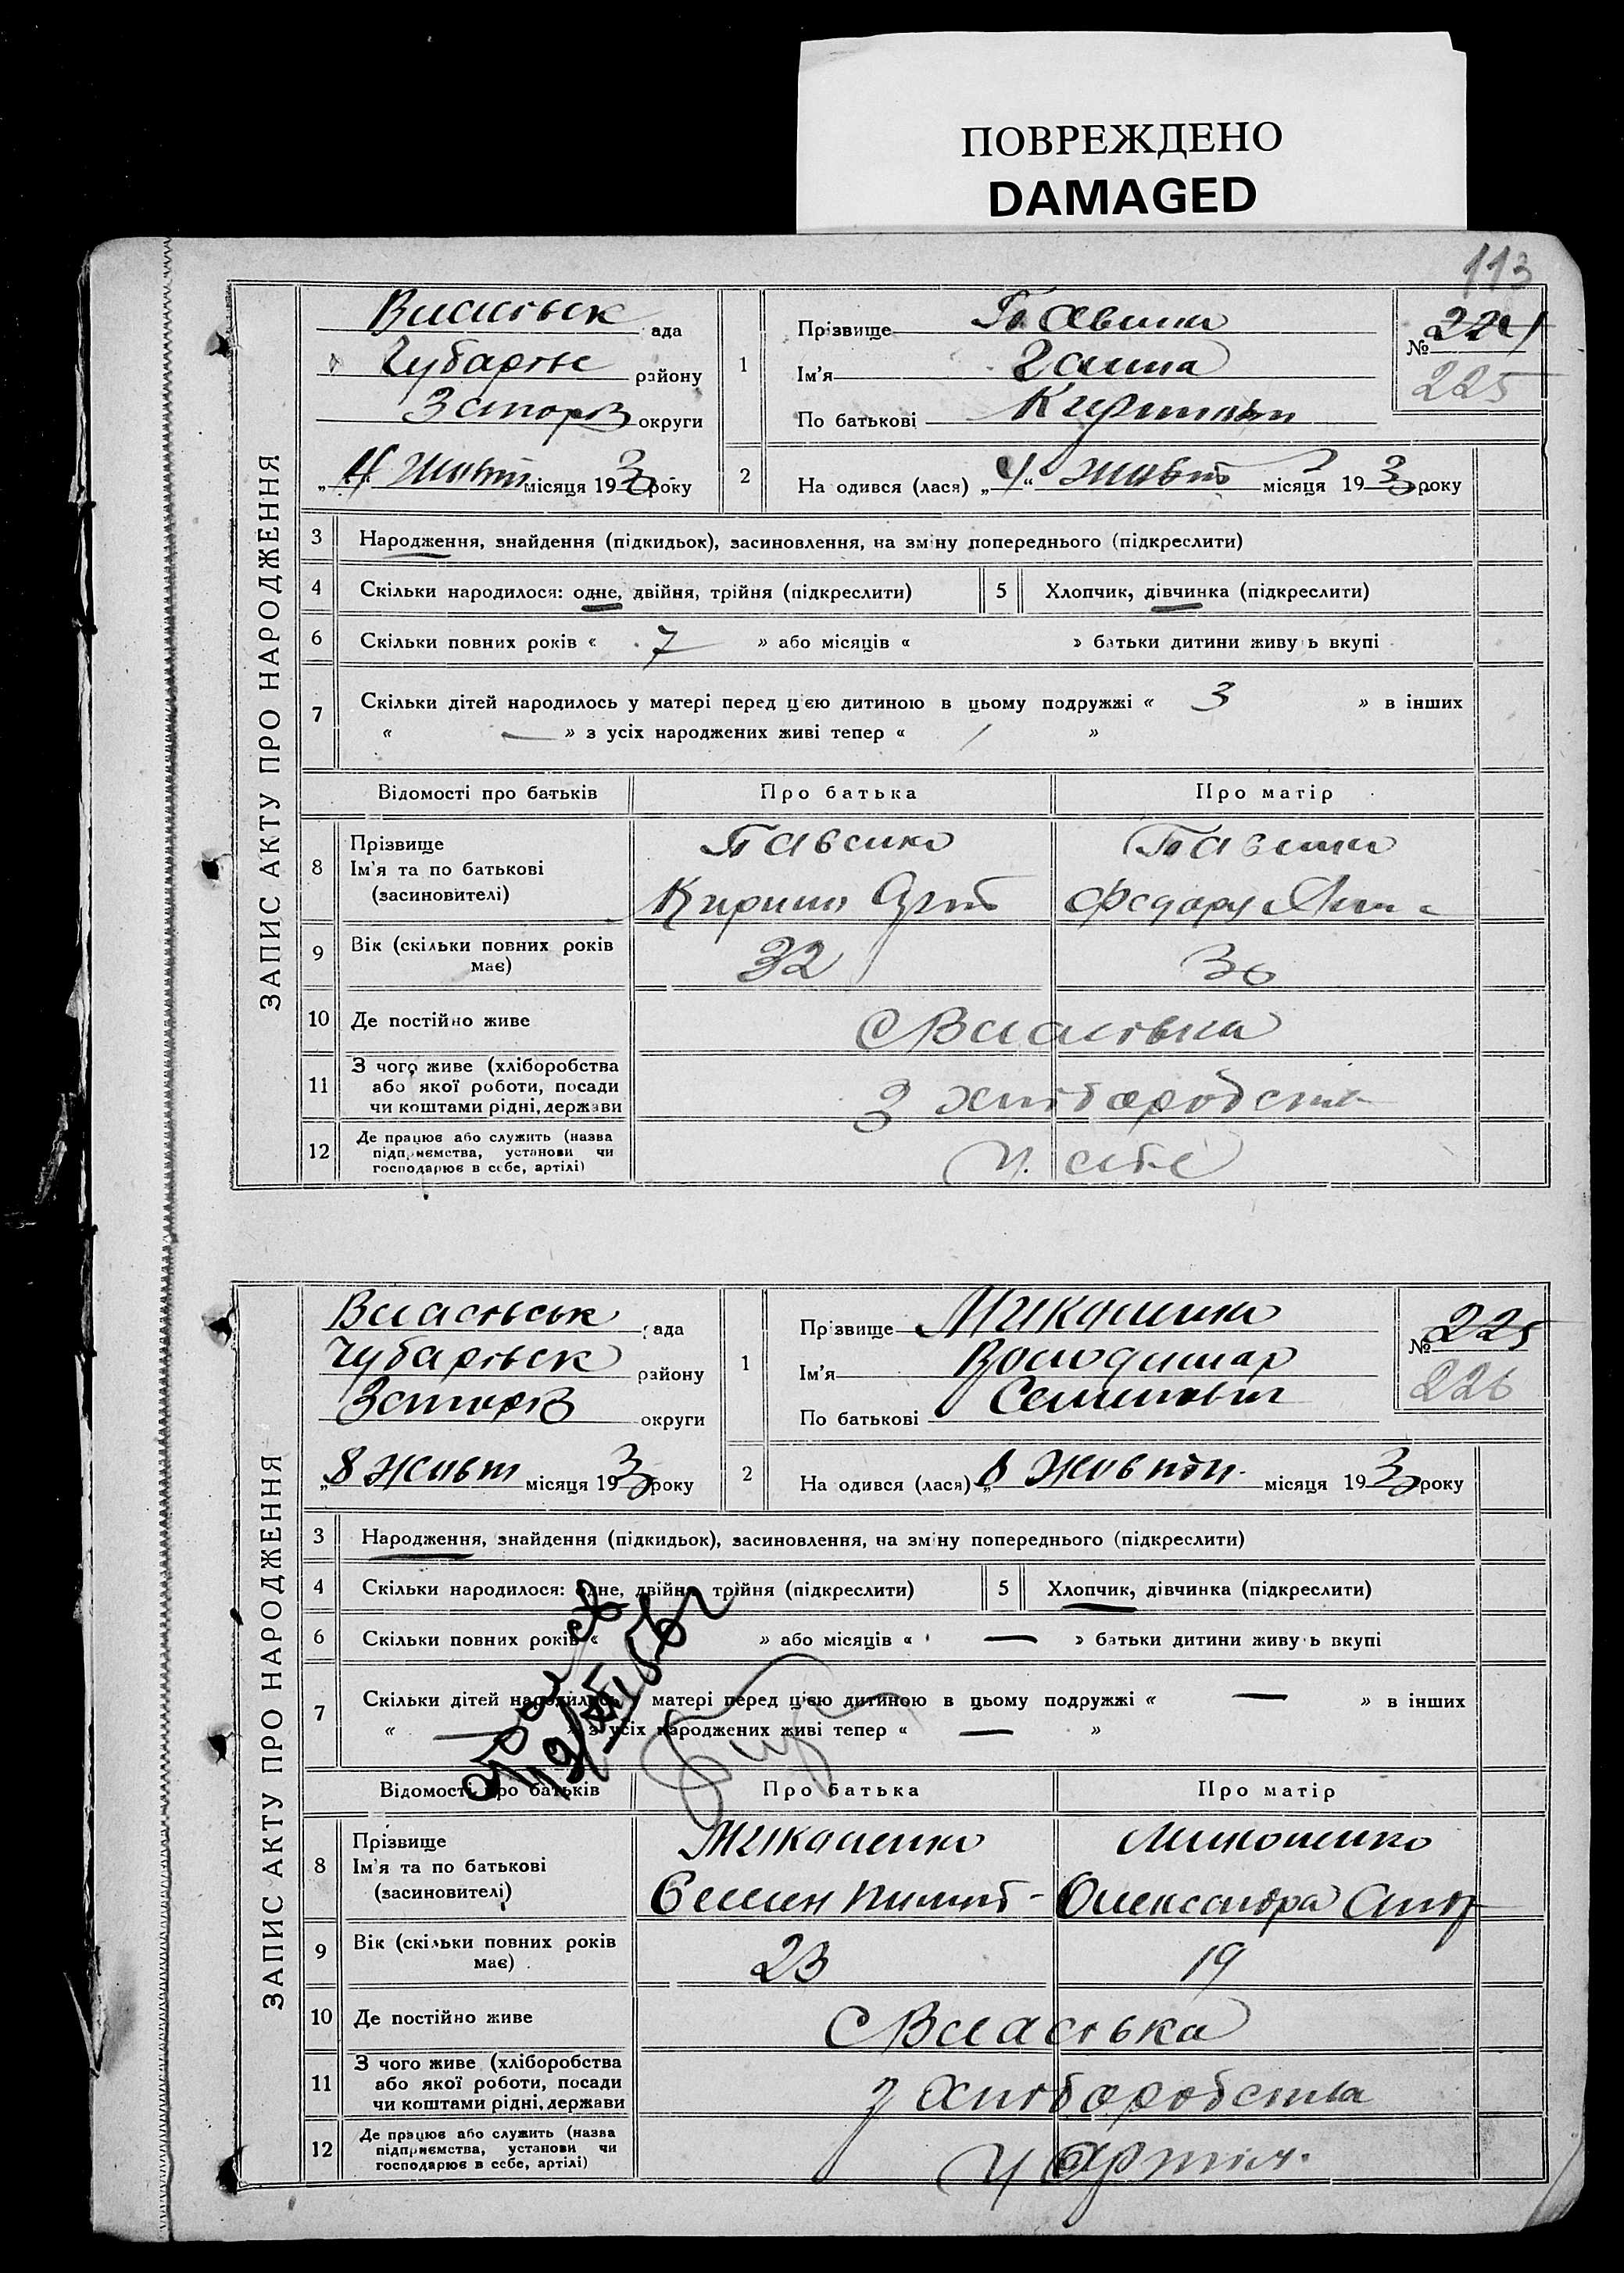 ПОВРЕЖДЕНО
DAMAGED
113
ЗАПИС АКТУ ПРО НАРОДЖЕННЯ
ада
району
округи
4 Жовт місяця 1930 року
1
Прізвище
Ім'я Ганна
По батькові
№ 224
225
2
На одився (лася) „4“ жовт місяця 1930 року
3 Народження, знайдення (підкидьок), засиновлення, на зміну попереднього (підкреслити)
4 Скільки народилося: одне, двійня, трійня (підкреслити) 5 Хлопчик, дівчинка (підкреслити)
6 Скільки повних років « 7 » або місяців « » батьки дитини живу ь вкупі
7 Скільки дітей народилось у матері перед цією дитиною в цьому подружжі « 3 » в інших
« — » з усіх народжених живі тепер « »
Відомості про батьків Про батька Про матір
8 Прізвище
Ім'я та по батькові
(засиновителі)
9 Вік (скільки повних років має) 32 30
10 Де постійно живе С Власівка
11 З чого живе (хліборобства або якої роботи, посади чи коштами рідні, держави З хліборобства
12 Де працює або служить (назва підприємства, установи чи господарює в себе, артілі)
ЗАПИС АКТУ ПРО НАРОДЖЕННЯ
Власівськ ада
Чубарівськ району
округи
„8 Жовт місяця 1930 року
1
Пр звище Миколенко
Ім'я Володимир
По батькові Семенович
№ 225
226
2
На одився (лася) „8 Жовтн. місяця 1930 року
3 Народження, знайдення (підкидьок), засиновлення, на зміну попереднього (підкреслити)
4 Скільки народилося: одне, двійня, трійня (підкреслити) 5 Хлопчик, дівчинка (підкреслити)
6 Скільки повних років « » або місяців « — » батьки дитини живу ь вкупі
7 Скільки дітей народилось у матері перед цією дитиною в цьому подружжі « — » в інших
« — » з усіх народжених живі тепер « — »
Відомості про батьків Про батька Про матір
8 Прізвище Миколенко Миколенко
Ім'я та по батькові
(засиновителі) Семен Олександра
9 Вік (скільки повних років має) 23 19
10 Де постійно живе С Власівка
11 З чого живе (хліборобства або якої роботи, посади чи коштами рідні, держави З хліборобства
12 Де працює або служить (назва підприємства, установи чи господарює в себе, артілі) У артіл.